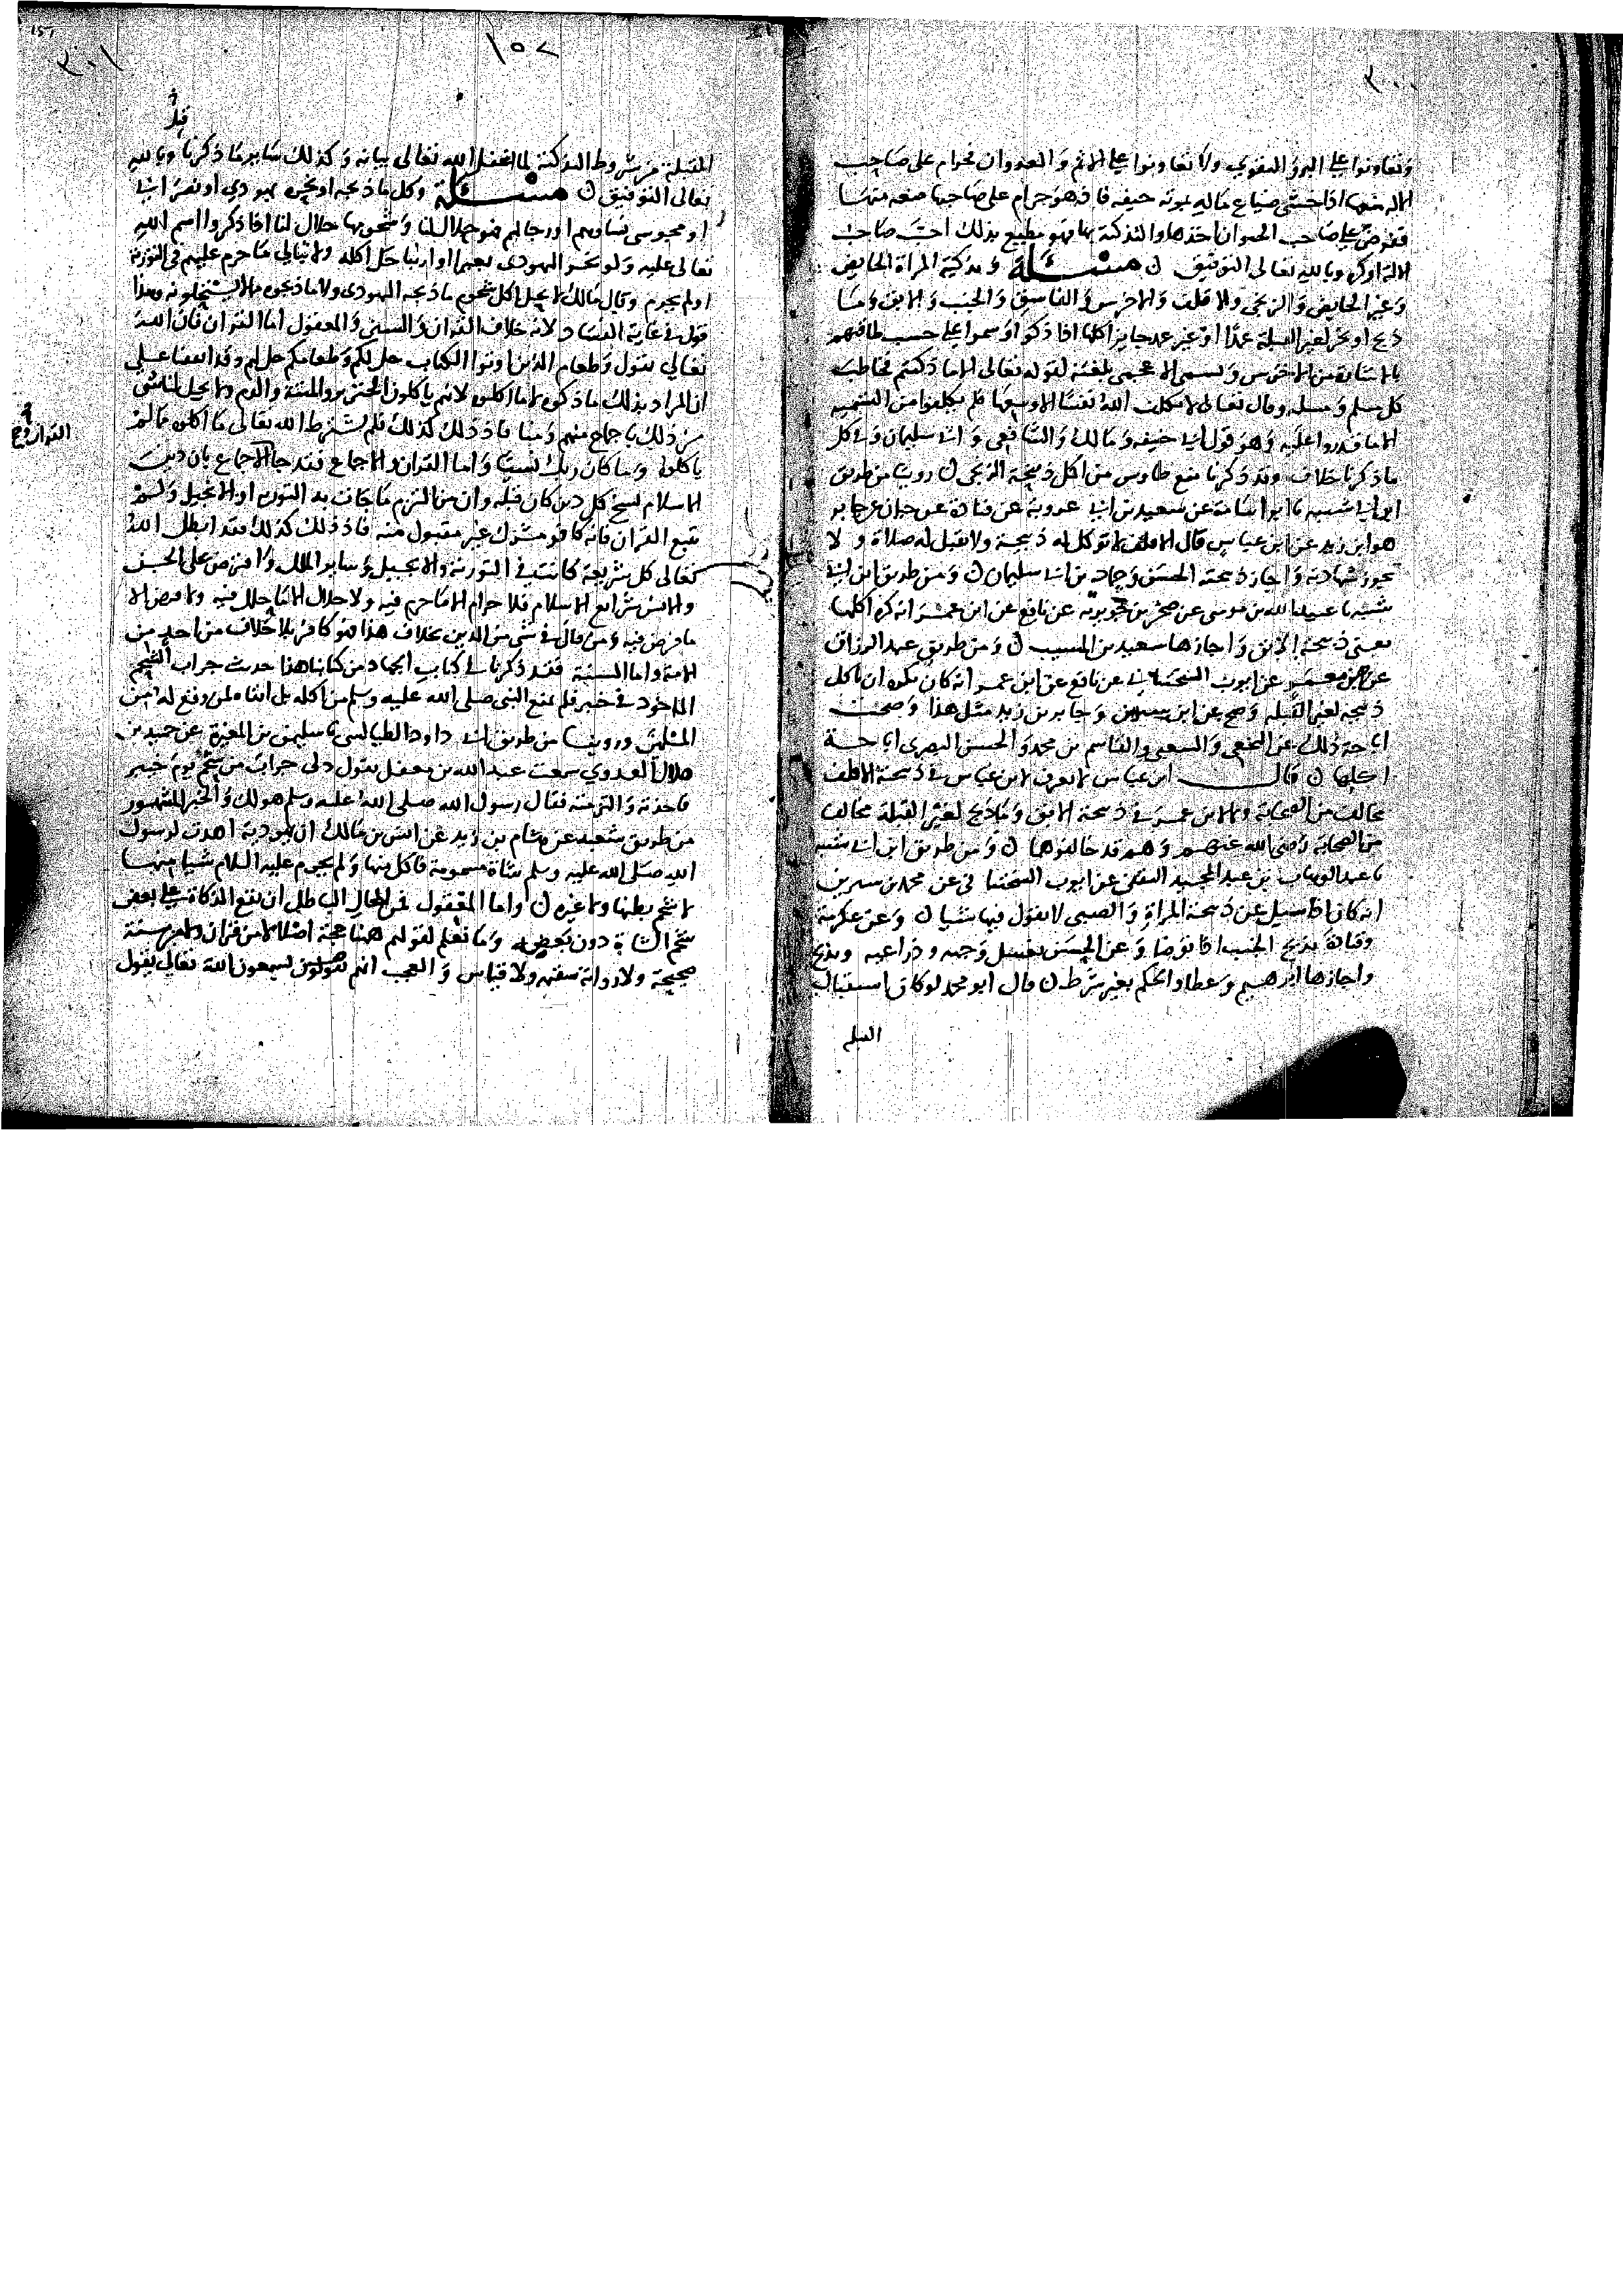 ٣٠٠
وتعاونوا على البر والتقوى ولا تعاونوا على الاثم والعدوان فحرام على صاحب
الالة منعها اذا خشى ضياع ماله بموته حيفه فاذ هو حرام على صاحبها منعه منها
ففرض على صاحب الحيوان اخذها والتذكية بها فهو مطيع بذلك احب صاحب
الالة او كره وبالله تعالى التوفيق ن مسئلة وتذكية المراة الحايض
وغير الحايض والزنجى والاقلف والاخرس والفاسق والجنب والابق وما
ذبح او نحر لغير القبلة عمدا او غير عمد جايز اكلها اذا ذكوا وسموا على حسب طاقتهم
بالاشارة من الاخرس ويسمى الاعجمى بلغته لقوله تعالى الا ما ذكيتم فخاطب
كل مسلم ومسلمه وقال تعالى لا يكلف الله نفسا الا وسعها فلم يكلفوا من التسميه
الا ما قدروا عليه وهو قول ابى حنيفه ومالك والشافعى وابى سليمان وفى كل
ما ذكرنا خلاف وقد ذكرنا منع طاوس من اكل ذبيحة الزنجى ن روينا من طريق
ابن ابى شيبه نا ابو اسامة عن سعيد بن ابى عروبة عن قتادة عن حيان عن جابر
هو ابن زيد عن ابن عباس قال الاقلف لا توكل له ذبيحة ولا تقبل له صلاة ولا
تجوز شهادته واجاز ذبيحته الحسن وحماد بن ابى سليمان ن ومن طريق ابن ابى
شيبه نا عبيد الله بن موسى عن صخر بن جويرية عن نافع عن ابن عمر انه كره اكلها
يعنى ذبيحة الابق واجازها سعيد بن المسيب ن ومن طريق عبد الرزاق
عن معمر عن ايوب السختيانى عن نافع عن ابن عمر انه كان يكره ان ياكل
ذبيحه لغير القبله وصح عن ابن سيرين وجابر بن زيد مثل هذا وصحت
اباحة ذلك عن النخعى والشعبى والقاسم بن محمد والحسن البصرى اباحة
اكلها ن قال ابن عباس لا يعرف لابن عباس فى ذبيحة الاقلف
مخالف من الصحابة ولا لابن عمر فى ذبيحة الابق وما ذبح لغير القبلة مخالف
من الصحابة رضى الله عنهم وهم قد خالفوها ن ومن طريق ابن ابى شيبه
نا عبد الوهاب بن عبد المجيد الثقفى عن ايوب السختيانى عن محمد بن سيرين
انه كان اذا سيل عن ذبيحة المراة والصبى لا يقول فيها شيا ن وعن عكرمة
وقتادة يذبح الجنب اذا توضا وعن الحسن يغسل وجهه وذراعيه ويذبح
واجازها ابرهيم وعطا والحكم بغير شرط ن قال ابو محمد لو كان استقبال
القبله
٣٠١
١٥٧
القبلة من شروط التذكية لما اغفل الله تعالى بيانه وكذلك ساير ما ذكرنا وبالله
تعالى التوفيق ن مسئلة وكل ما ذبحه او نحره يهودى او نصرانى
او مجوسى نساوهم او رجالهم فهو حلال لنا وشحومها حلال لنا اذا ذكروا اسم الله
تعالى عليه ولو نحر اليهودى بعيرا او ارنبا حل اكله ولا نبالى ما حرم عليهم فى التورية
او لم يحرم وقال مالك لا يحل اكل شحوم ما ذبحه اليهودى ولا ما ذبحوه مما لا يستحلونه وهذا
قول فى غاية الفساد لانه خلاف القران والسنن والمعقول اما القران فان الله
تعالى يقول وطعام الذين اوتوا الكتاب حل لكم وطعامكم حل لهم وقد اتفقنا على
ان المراد بذلك ما ذكوه لا ما اكلوه لانهم ياكلون الخنزير والميتة والدم ولا يحل لنا شى
من ذلك باجماع منهم ومنا فاذ ذلك كذلك فلم يشترط الله تعالى ما اكلوه مما لم
ياكلوه وما كان ربك نسيا واما القران والاجماع فقد جا الاجماع بان دين
الاسلام نسخ كل دين كان قبله وان من التزم ما جات به التورية او الانجيل ولم
يتبع القران فانه كافر مشرك غير مقبول منه فاذ ذلك كذلك فقد ابطل الله
تعالى كل شريعة كانت فى التورية والانجيل وساير الملل وافترض على الجن
والانس شرايع الاسلام فلا حرام الا ما حرم فيه ولا حلال الا ما حلل فيه ولا فرض الا
ما فرض فيه ومن قال فى شى من الدين بخلاف هذا فهو كافر بلا خلاف من احد من
الامة واما السنة فقد ذكرنا فى كتاب الجهاد من كتابنا هذا حديث جراب الشحم
الماخوذ فى خيبر فلم يمنع النبى صلى الله عليه وسلم من اكله بل ابقاه لمن وقع له من
المسلمين وروينا من طريق ابى داود الطيالسى نا سليمن بن المغيرة عن حميد بن
هلال العدوي سمعت عبد الله بن مغفل يقول دلى جراب من شحم يوم خيبر
فاخذته والتزمته فقال رسول الله صلى الله عليه وسلم هو لك والخبر المشهور
من طريق شعبه عن هشام بن زيد عن انس بن مالك ان يهودية اهدت لرسول
الله صلى الله عليه وسلم شاة مسمومة فاكل منها ولم يحرم عليه السلام شيا منها
لا شحم بطنها ولا غيره ن واما المعقول فمن المحال الباطل ان تقع الذكاة على بعض
شحم الشاة دون بعض وما نعلم لقولهم ههنا حجة اصلا لا من قران ولا من سنة
صحيحة ولا رواية سقيمه ولا قياس والعجب انهم يسمعون الله تعالى يقول
القران